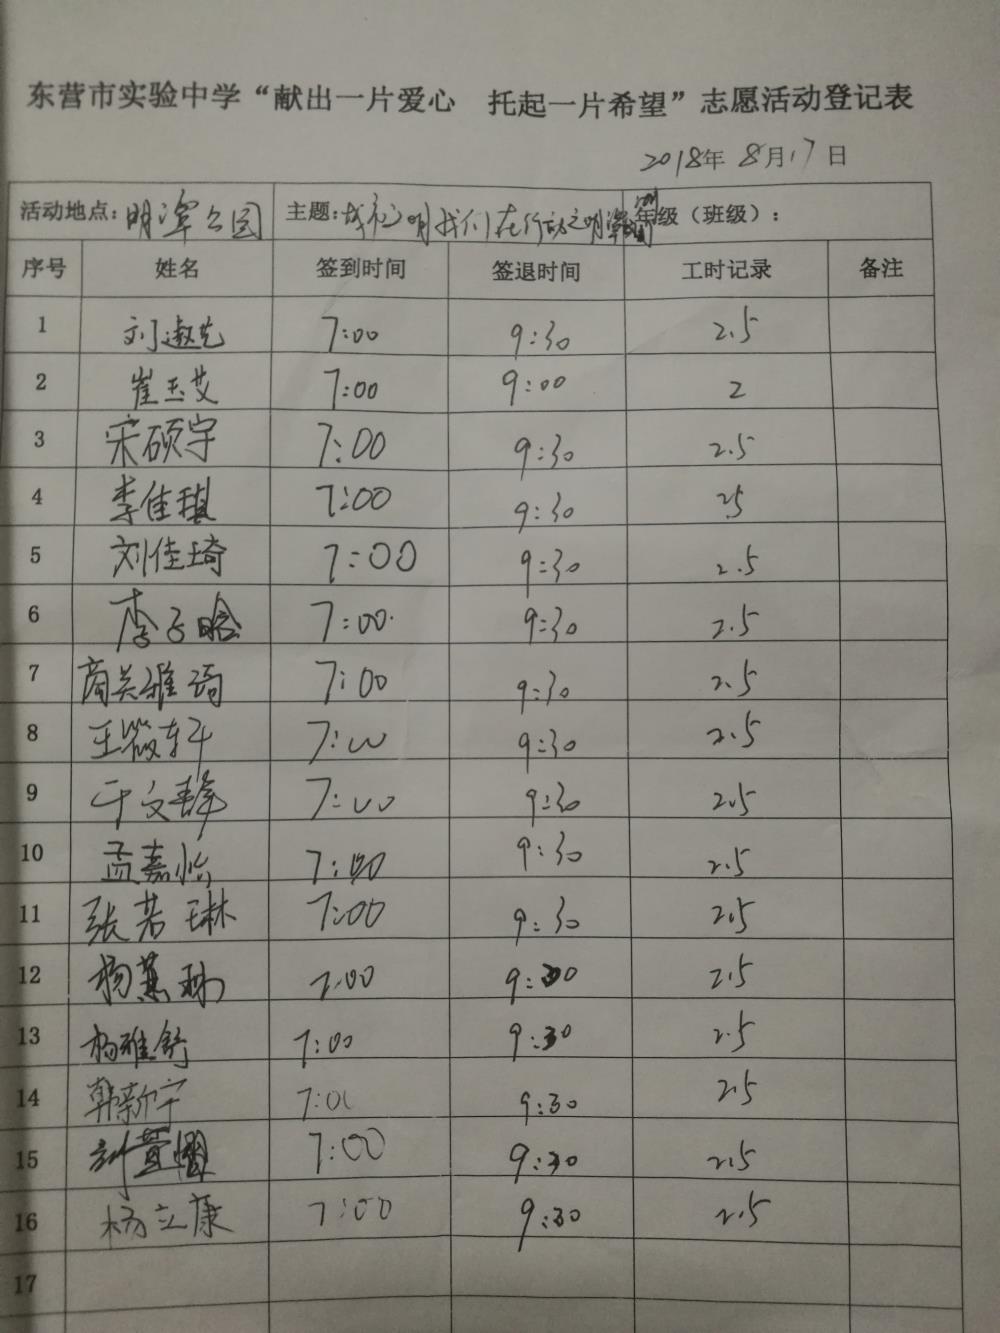 东营市实验中学“献出一片爱心 托起一片希望”志愿活动登记表
2018年 8月17日
活动地点：明潭公园 主题：城市文明我们在行动之明潭 年级（班级）：
序号 姓名 签到时间 签退时间 工时记录 备注
1 刘淑先 7:00 9:30 2.5
2 崔玉艾 7:00 9:00 2
3 宋硕宇 7:00 9:30 2.5
4 李佳琪 7:00 9:30 25
5 刘佳琦 7:00 9:30 2.5
6 李子晗 7:00 9:30 2.5
7 商关雅琦 7:00 9:30 2.5
8 王筱轩 7:00 9:30 2.5
9 于文 7:00 9:30 2.5
10 孟嘉怡 7:00 9:30 2.5
11 张若琳 7:00 9:30 2.5
12 杨蕙 7:00 9:30 2.5
13 杨雅舒 7:00 9:30 2.5
14 韩新宇 7:00 9:30 2.5
15 7:00 9:30 2.5
16 杨立康 7:00 9:30 2.5
17